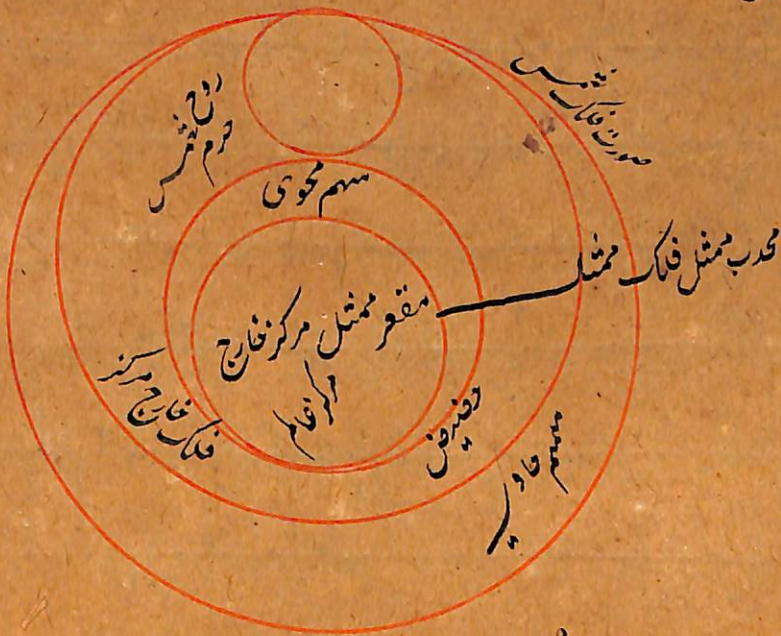 صورت فلک شمس
جرم شمس
متمم محوی
محدب ممثل فلک ممثل
مقعر ممثل مرکز خارج
مرکز عالم
فلک خارج مرکز
حضیض
متمم حاوی